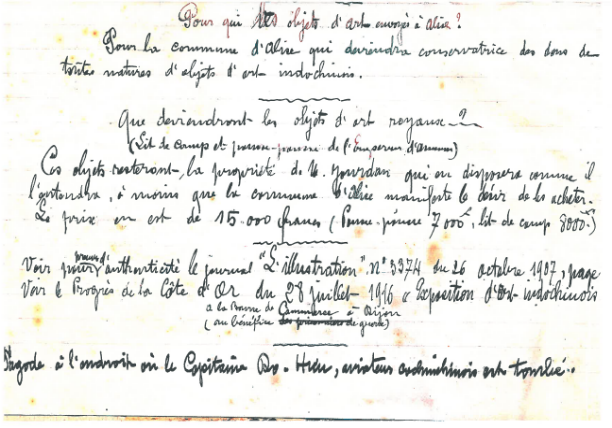 Pour qui les objets d'art envoyés à Alise?
Pour la commune d'Alise qui deviendra conservatrice des dons de
toutes natures d'objets d'art indochinois.
Que deviendront les objets d'art royaux?
(Lit de camp et pousse-pousse de l'Empereur d'Annam)
Ces objets resteront la propriété de M. Jourdan qui en disposera comme il
l'entendra, à moins que la commune d'Alise manifeste le désir de les acheter.
Le prix en est de 15.000 francs (Pousse-pousse 7000f, lit de camp 8000f)
Voir pour d'authenticité le journal "L'illustration" n° 3374 du 26 octobre 1907, page
Voir le Progrès de la Côte d'Or du 28 juillet 1916 "Exposition d'Art indochinois
à la Bourse de Commerce à Dijon
(au bénéfice des prisonniers de guerre)
Pagode à l'endroit où le Capitaine Do-Hieu, aviateur cochinchinois est tombé.